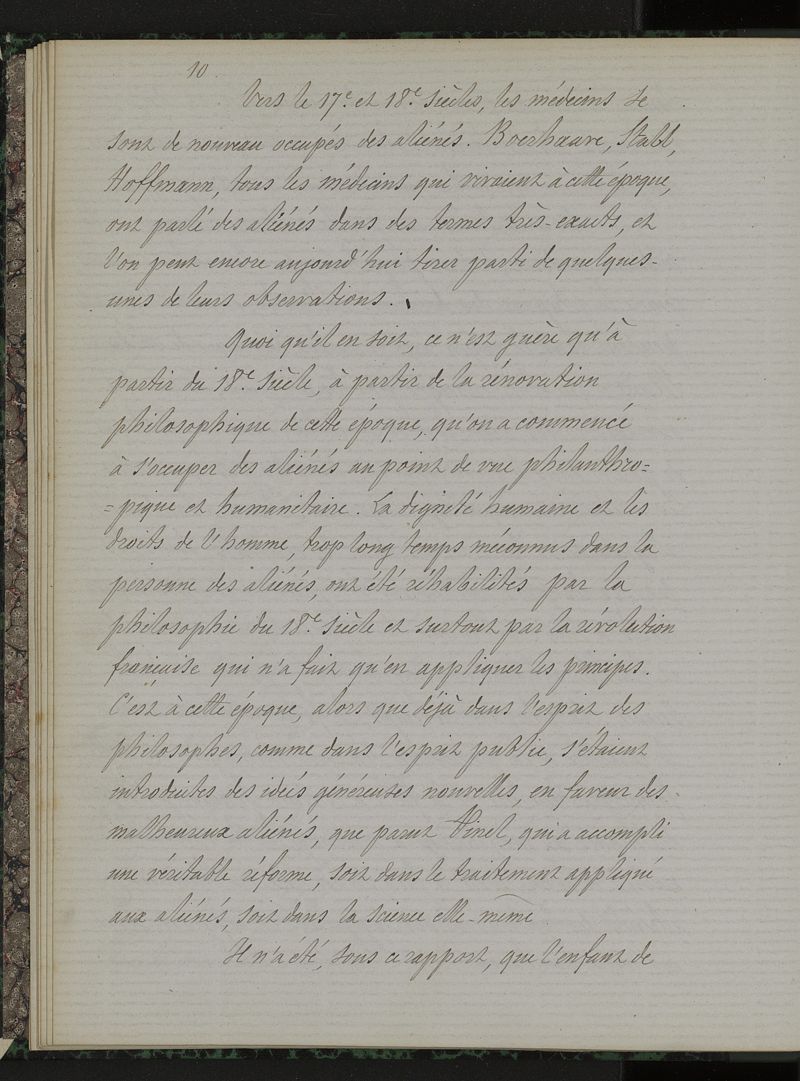 10
Vers le 17e et 18e siècles, les médecins se
sont de nouveau occupés des aliénés. Boerhaave, Stahl,
Hoffmann, tous les médecins qui vivaient à cette époque,
ont parlé des aliénés dans des termes très-exacts, et
l'on peut encore aujourd'hui tirer parti de quelques-
unes de leurs observations.
Quoi qu'il en soit, ce n'est guère qu'à
partir du 18e siècle, à partir de la rénovation
philosophique de cette époque, qu'on a commencé
à s'occuper des aliénés au point de vue philanthro=
=pique et humanitaire. La dignité humaine et les
droits de l'homme, trop long temps méconnus dans la
personne des aliénés, ont été réhabilités par la
philosophie du 18e siècle et surtout par la révolution
française qui n'a fait qu'en appliquer les principes.
C'est à cette époque, alors que déjà dans l'esprit des
philosophes, comme dans l'esprit public, s'étaient
introduites des idées généreuses nouvelles, en faveur des
malheureux aliénés, que parut Pinel, qui a accompli
une véritable réforme, soit dans le traitement appliqué
aux aliénés, soit dans la science elle-même
Il n'a été, sous ce rapport, que l'enfant de